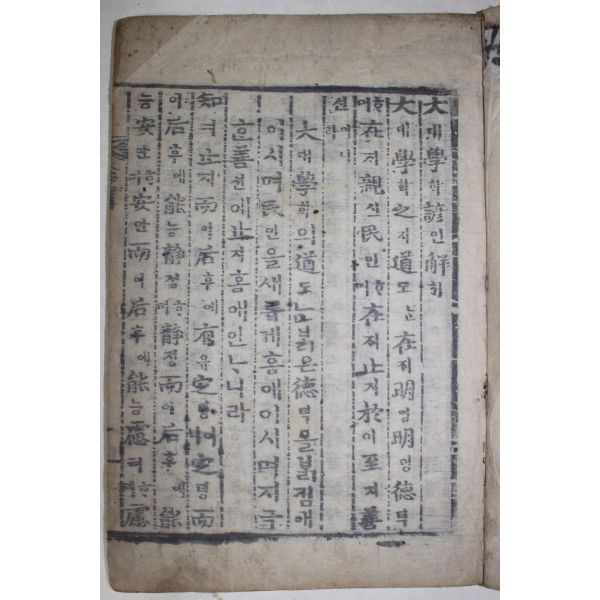 大대學학諺언解ᄒᆡ
大대學학之지道도ᄂᆞᆫ在ᄌᆡ明명明명德덕
ᄒᆞ며在ᄌᆡ親신民민ᄒᆞ며在ᄌᆡ止지於어至지善
션이니라
大대學학의道도ᄂᆞᆫ ᄇᆞᆯ근德덕을ᄇᆞᆯ킴애
이시며民민을새롭게홈애이시며지극
ᄒᆞᆫ善션애止지홈애인ᄂᆞ니라
知디止지而이后후에有유定뎡이니定뎡而
이后후에能능靜졍ᄒᆞ며靜졍而이后후에能
능安안ᄒᆞ며安안而이后후에能능慮려ᄒᆞ며慮